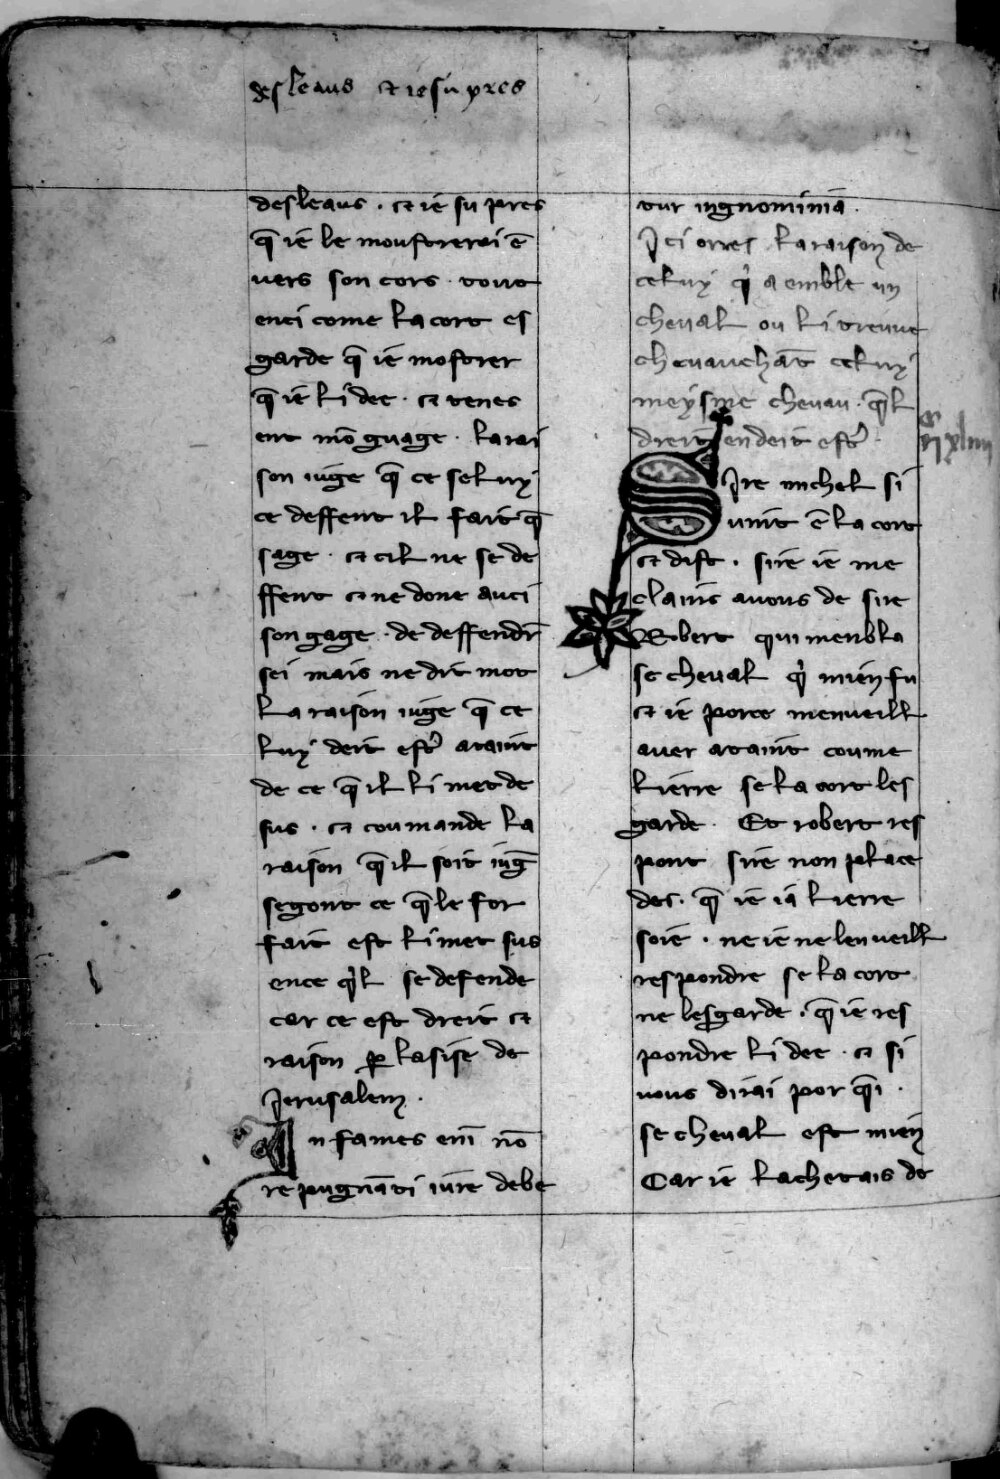 desleaus et ie su pres
desleaus . et ie su pres
q̄ ie le moustrerai ē
uers son cors . tout
enci come la cort es
garde q̄ ie mostrer
q̄ ie li dee . et tenes
ent mō guage . la rai
son iuge q̄ ce seluy
ce deffent il fait q̄
sage . et cil ne se de
ffent et ne done auci
son gage . de deffendr̄
sei mais ne dit mot
la raison iuge q̄ ce
luy deit estr̄ ataint
de ce q̄ il li met de
sus . et coumande la
raison q̄ il soit iuḡ
segont ce q̄ le for
fait est li met sus
ence q̓l se defende
car ce est dreit et
raison ꝑ lasise de
Jerusalem .
In fames enī nō
repugnāti iure debe
tur ingnominiā .
Ici orres la raison de
celuy q̓ a emble un
cheual ou li treuue
cheuauchāt celuy
meysme cheuau . q̄l
dreit en deit estr̄ .
Sire michel si
uint ē la cort
et dist . sire ie me
clains a uous de sire
Robert qui menbla
se cheual q̓ mien fu
et ie porce men ueill
auer ataint coume
lierre se la cort les
garde . Et robert res
pont sire non place
des . q̄ ie ia lierre
soie . ne ie ne len ueill
respondre se la cort
ne lesgarde . q̄ ie res
pondre li dee . et si
uous dirai por q̄i .
se cheual est mien
Car ie lachetais de